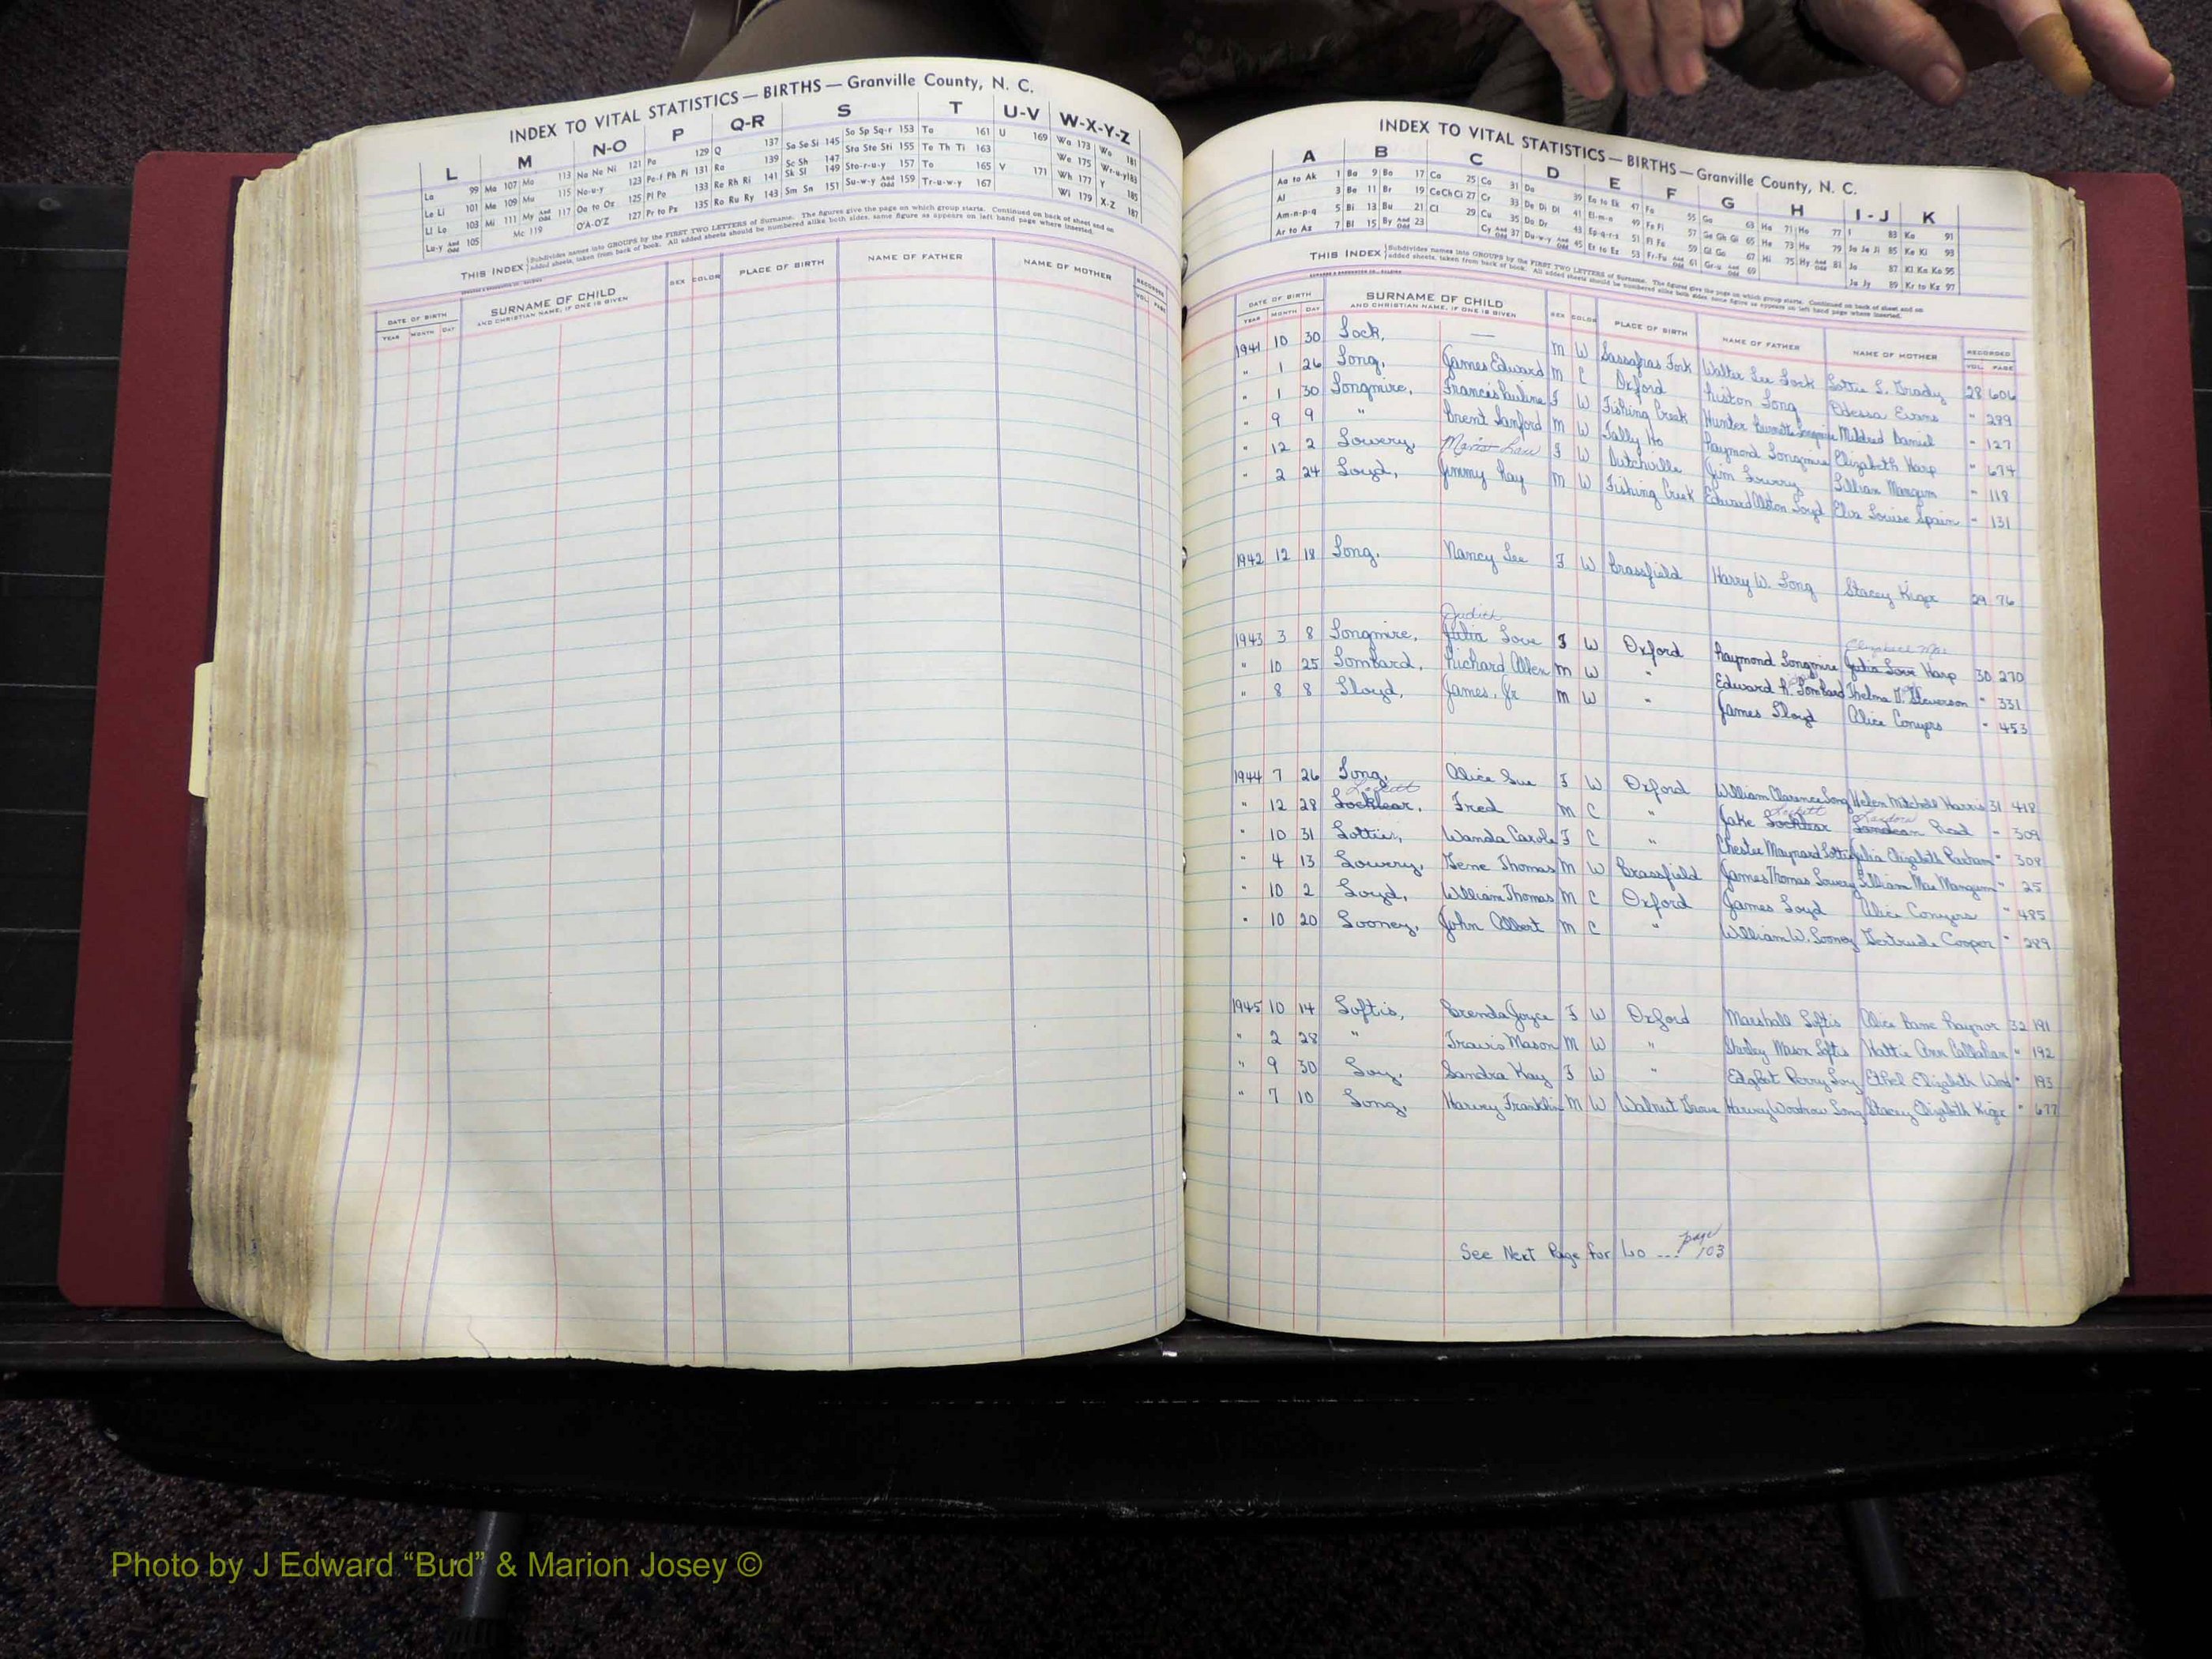 INDEX TO VITAL STATISTICS — BIRTHS — Granville County, N. C.
L M N-O P Q-R S T U-V W-X-Y-Z
La 99 Ma 107 Mo 113 Na Ne Ni 121 Pa 129 Q 137 Sa Se Si 145 So Sp Sq-r 153 Ta 161 U 169 Wa 173 Wo 181
Le Li 101 Me 109 Mu 115 No-u-y 123 Pe-f Ph Pi 131 Ra 139 Sc Sh 147 Sta Ste Sti 155 Te Th Ti 163 We 175 Wr-u-y 183
Ll Lo 103 Mi 111 My And Odd 117 Oa to Oz 125 Pl Po 133 Re Rh Ri 141 Sk Sl 149 Sto-r-u-y 157 To 165 V 171 Wh 177 Y 185
Lu-y And Odd 105 Mc 119 O'A-O'Z 127 Pr to Pz 135 Ro Ru Ry 143 Sm Sn 151 Su-w-y And Odd 159 Tr-u-w-y 167 Wi 179 X-Z 187
THIS INDEX Subdivides names into GROUPS by the FIRST TWO LETTERS of Surname. The figures give the page on which group starts. Continued on back of sheet and on
added sheets, taken from back of book. All added sheets should be numbered alike both sides, same figure as appears on left hand page where inserted.
DATE OF BIRTH SURNAME OF CHILD SEX COLOR PLACE OF BIRTH NAME OF FATHER NAME OF MOTHER RECORDED
YEAR MONTH DAY AND CHRISTIAN NAME, IF ONE IS GIVEN VOL. PAGE
INDEX TO VITAL STATISTICS — BIRTHS — Granville County, N. C.
A B C D E F G H I - J K
Aa to Ak 1 Ba 9 Bo 17 Ca 25 Co 31 Da 39 Ea to Ek 47 Fa 55 Ga 63 Ha 71 Ho 77 I 83 Ka 91
Al 3 Be 11 Br 19 Ce Ch Ci 27 Cr 33 De Di Dl 41 El-m-n 49 Fe Fi 57 Ge Gh Gi 65 He 73 Hu 79 Ja Je Ji 85 Ke Ki 93
Am-n-p-q 5 Bi 13 Bu 21 Cl 29 Cu 35 Do Dr 43 Ep-q-r-s 51 Fl Fo 59 Gl Go 67 Hi 75 Hy And Odd 81 Jo 87 Kl Kn Ko 95
Ar to Az 7 Bl 15 By And Odd 23 Cy And Odd 37 Du-w-y And Odd 45 Et to Ez 53 Fr-Fu And Odd 61 Gr-u And Odd 69 Ju Jy 89 Kr to Kz 97
THIS INDEX Subdivides names into GROUPS by the FIRST TWO LETTERS of Surname. The figures give the page on which group starts. Continued on back of sheet and on
added sheets, taken from back of book. All added sheets should be numbered alike both sides, same figure as appears on left hand page where inserted.
DATE OF BIRTH SURNAME OF CHILD SEX COLOR PLACE OF BIRTH NAME OF FATHER NAME OF MOTHER RECORDED
YEAR MONTH DAY AND CHRISTIAN NAME, IF ONE IS GIVEN VOL. PAGE
1941 10 30 Lock, — M W Sassafras Fork Walter Lee Lock Lottie L. Grady 28 606
" 1 26 Long, James Edward M C Oxford Liston Long Odessa Evans " 289
" 1 30 Longmire, Francis Pauline F W Fishing Creek Hunter Burnette Longmire Mildred Daniel " 127
" 9 9 " Brent Sanford M W Tally Ho Raymond Longmire Elizabeth Harp " 674
" 12 2 Lowery, F W Dutchville Jim Lowery Lillian Mangum " 118
" 2 24 Loyd, Jimmy Ray M W Fishing Creek Edward Alston Loyd Elva Louise Spain " 131
1942 12 18 Long, Nancy Lee F W Brassfield Harry W. Long Stacey Kiger 29 76
Judith Elizabeth Mae
1943 3 8 Longmire, Julia Love F W Oxford Raymond Longmire Julia Love Harp 30 270
" 10 25 Lombard, Richard Allen M W " Edward R. Lombard Thelma D. Stevenson " 331
" 8 8 Lloyd, James, Jr M W " James Lloyd Alice Conyers " 453
1944 7 26 Long, Alice Sue F W Oxford William Clarence Long Helen Mitchell Harris 31 418
Lockett Lockett
" 12 28 Locklear, Fred M C " Jake Locklear " 309
" 10 31 Lottier, Wanda Carole F C " Chester Maynard Lottier Julia Elizabeth Parham " 308
" 4 13 Lowery, Gene Thomas M W Brassfield James Thomas Lowery Lilliam Mae Mangum " 25
" 10 2 Loyd, William Thomas M C Oxford James Loyd Alice Conyers " 485
" 10 20 Looney, John Albert M C " William W. Looney Gertrude Cooper " 289
1945 10 14 Loftis, Brenda Joyce F W Oxford Marshall Loftis Alice Bane Raynor 32 191
" 2 28 " Travis Mason M W " Stanley Mason Loftis Hattie Ann Callahan " 192
" 9 30 Loy, Sandra Kay F W " Perry Loy Ethel Elizabeth " 193
" 7 10 Long, Harvey Franklin M W Walnut Grove Harvey Woodrow Long Stacey Elizabeth Kiger " 677
See Next Page for Lo --- page 103
Photo by J Edward “Bud” & Marion Josey ©